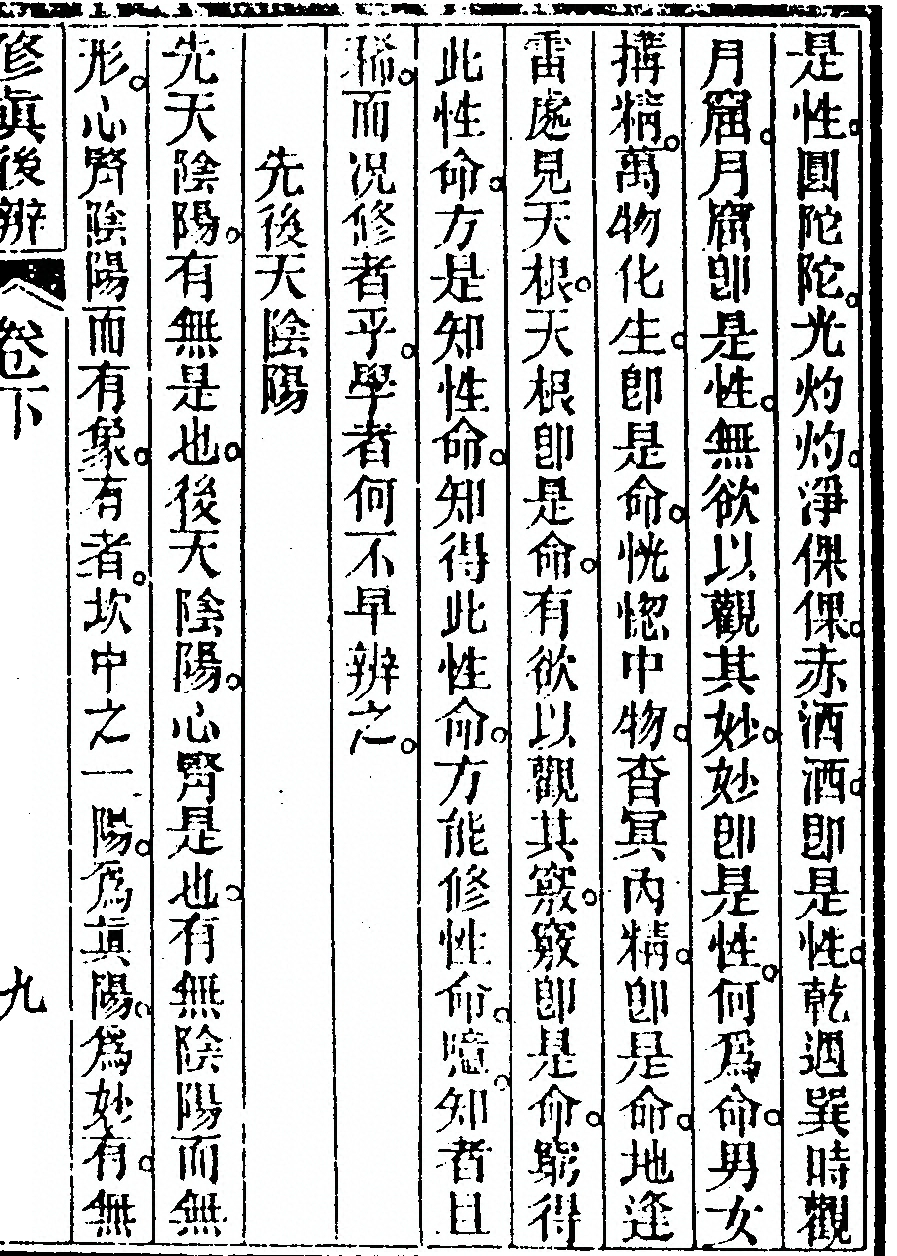 是性。圓陀陀。光灼灼。淨倮倮。赤洒洒。卽是性。乾遇巽時觀
月窟。月窟卽是性。無欲以觀其妙。妙卽是性。何爲命。男女
搆精。萬物化生。卽是命。恍惚中物。杳冥內精。卽是命。地逢
雷處見天根。天根卽是命。有欲以觀其竅。竅卽是命。窮得
此性命。方是知性命。知得此性命。方能修性命。噫。知者且
稀。而况修者乎。學者何不早辨之。
先後天陰陽
先天陰陽。有無是也。後天陰陽。心腎是也。有無陰陽而無
形。心腎陰陽而有象。有者。坎中之一陽。爲眞陽。爲妙有。無
修眞後辨 卷下 九